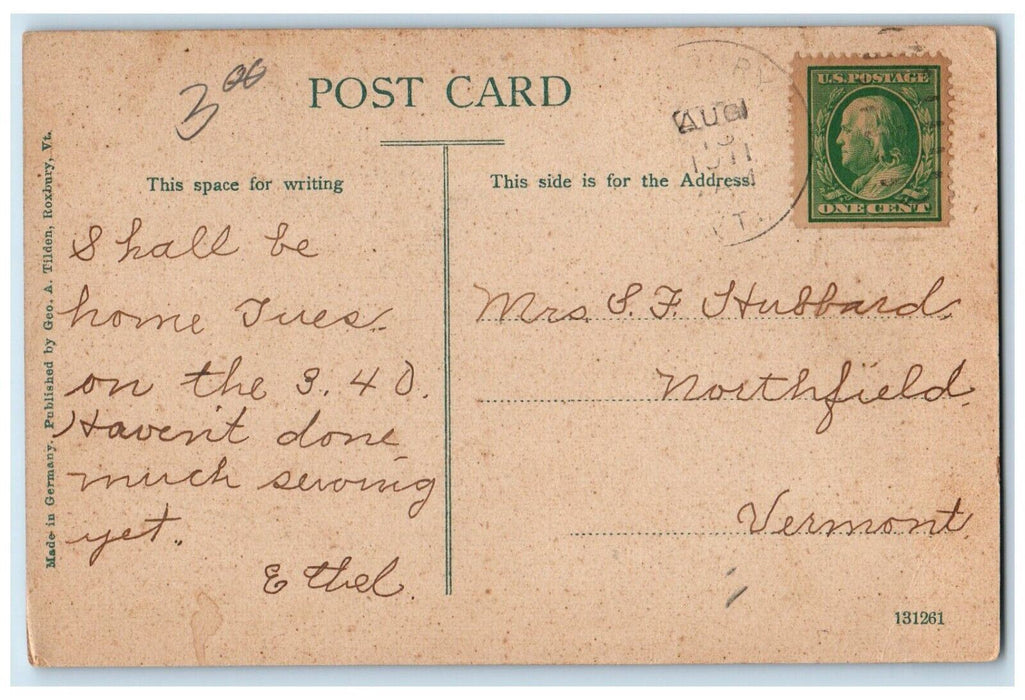 3 00
POST CARD
AUG
1911
VT.
U.S. POSTAGE
ONE CENT
This space for writing
This side is for the Address.
Made in Germany. Published by Geo. A. Tilden, Roxbury, Vt.
Shall be
home Tues.
on the 3.40.
Haven't done
much sewing
yet.
Ethel.
Mrs. S. F. Hubbard,
Northfield,
Vermont
131261